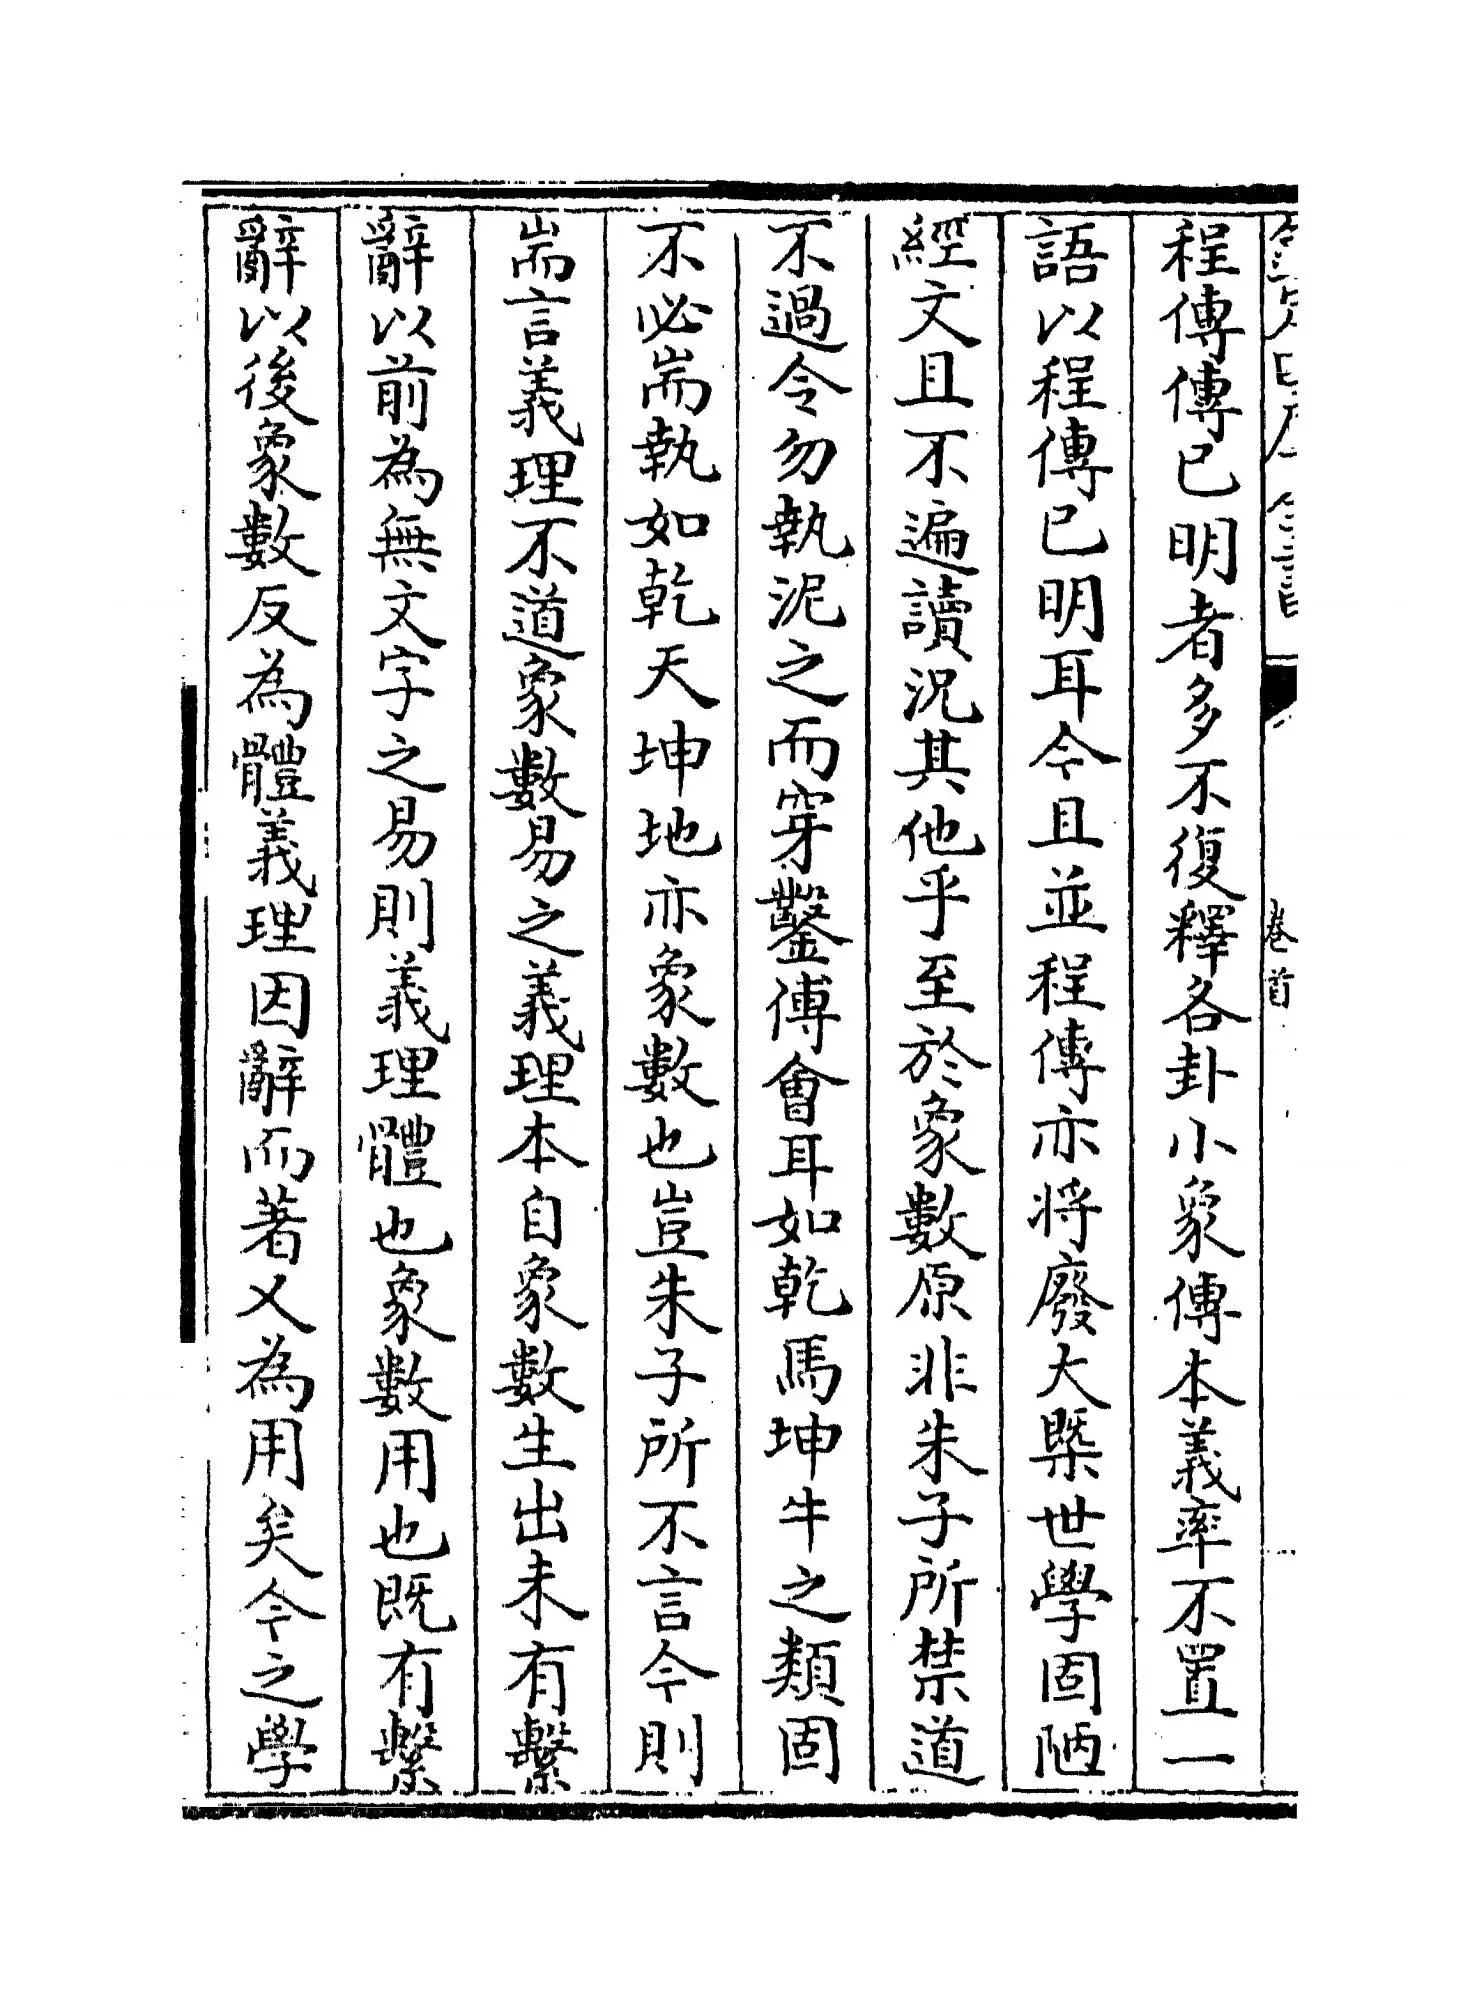 欽定四庫全書
卷首
程傳傳已明者多不復釋各卦小象傳本義率不置一
語以程傳已明耳今且並程傳亦將廢大槩世學固陋
經文且不遍讀況其他乎至於象數原非朱子所禁道
不過令勿執泥之而穿鑿傅會耳如乾馬坤牛之類固
不必耑執如乾天坤地亦象數也豈朱子所不言今則
耑言義理不道象數易之義理本自象數生出未有繫
辭以前為無文字之易則義理體也象數用也既有繫
辭以後象數反為體義理因辭而著又為用矣今之學